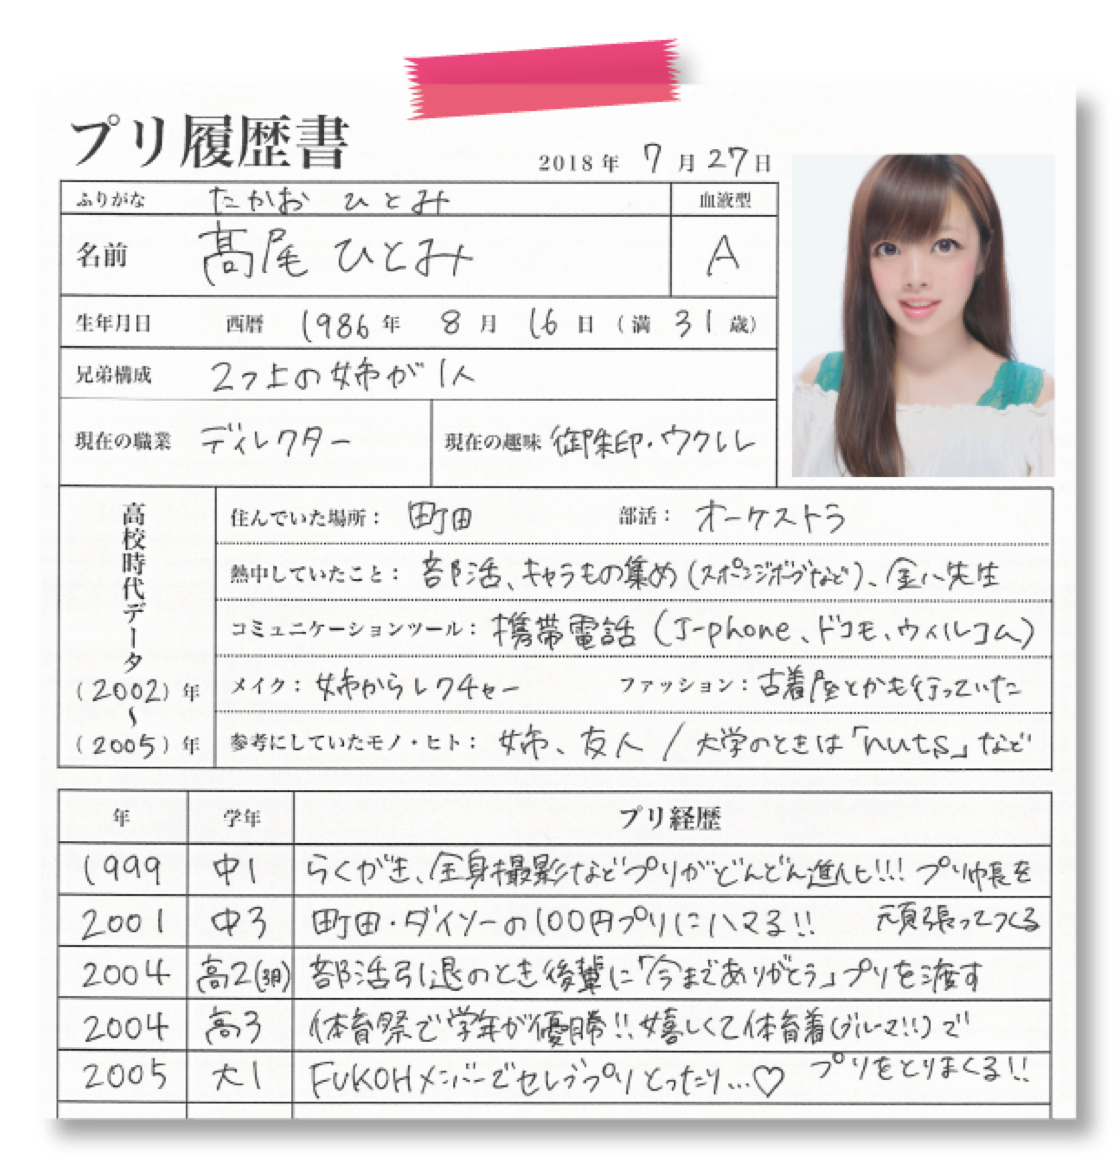 プリ履歴書
2018年 7月27日
ふりがな たかお ひとみ 血液型
名前 髙尾 ひとみ A
生年月日 西暦 1986年 8月 16日 (満 31 歳)
兄弟構成 2つ上の姉が1人
現在の職業 ディレクター 現在の趣味 御朱印・ウクレレ
高校時代データ
(2002)年
〜
(2005)年
住んでいた場所： 町田 部活： オーケストラ
熱中していたこと： 部活、キャラもの集め(スポンジボブなど)、金八先生
コミュニケーションツール： 携帯電話(J-phone、ドコモ、ウィルコム)
メイク： 姉からレクチャー ファッション： 古着屋とかも行っていた
参考にしていたモノ・ヒト： 姉、友人 / 大学のときは「nuts」など
年 学年 プリ経歴
1999 中1 らくがき、全身撮影などプリがどんどん進化!!! プリ帳を
頑張ってつくる
2001 中3 町田・ダイソーの100円プリにハマる!!
2004 高2(3月) 部活引退のとき後輩に「今までありがとう」プリを渡す
2004 高3 体育祭で学年が優勝!! 嬉しくて体育着(ブルマ!!)で
プリをとりまくる!!
2005 大1 FUKOHメンバーでセレブプリとったり…♡